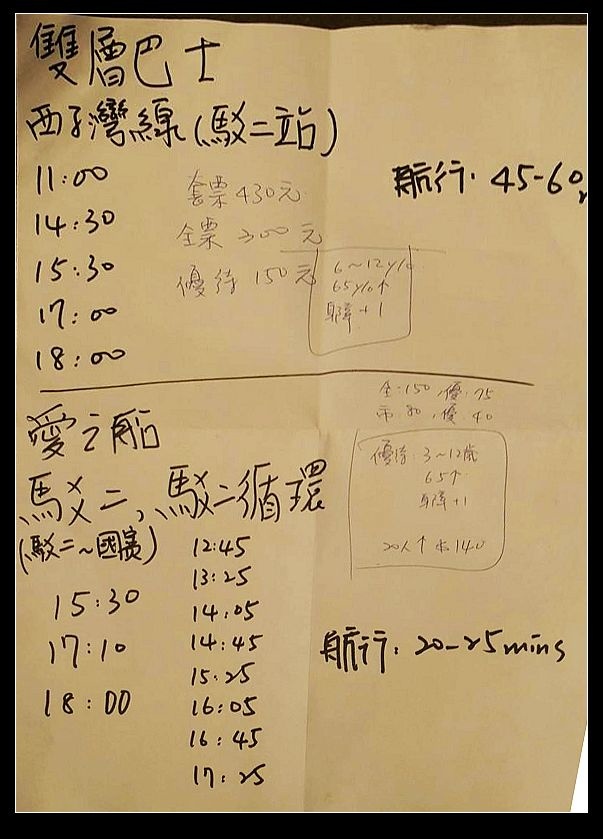 雙層巴士
西子灣線(駁二站)
航行: 45-60
11:00
14:30
15:30
17:00
18:00
套票 430元
全票 300元
優待 150元
6~12y/o
65y/o↑
身障+1
愛之船
全:150,優:75
市:80,優:40
優待: 3~12歲
65↑
身障+1
20人↑ 140
駁二, 駁二循環
(駁二~國賓)
15:30
17:10
18:00
12:45
13:25
14:05
14:45
15:25
16:05
16:45
17:25
航行: 20-25mins